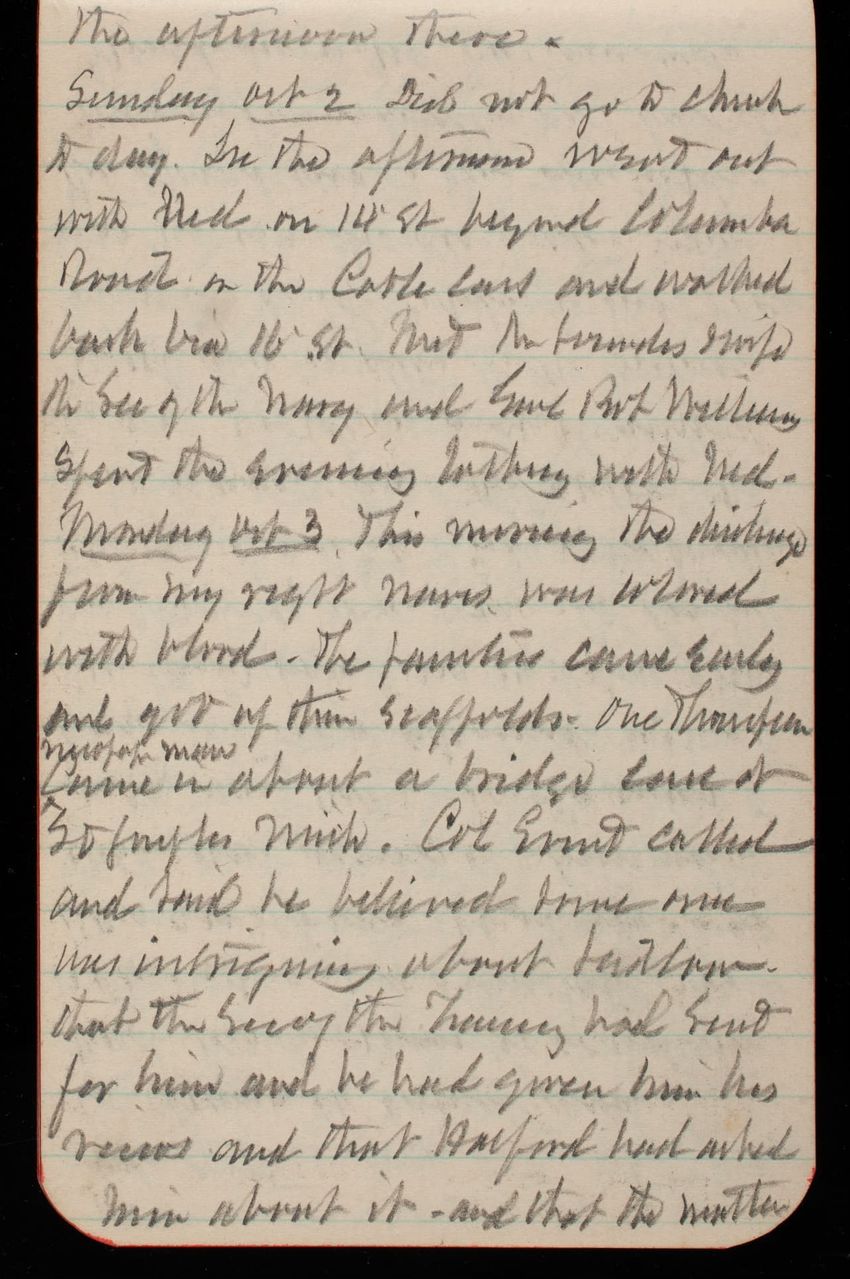 the afternoon there.
Sunday Oct 2 Did not go to church
to day. In the afternoon went out
with Ned on 14 St beyond Columbia
Road on the Cable cars and walked
back via 16 St. Met & wife
the Sec of the Navy and Genl Rob Williams
Spent the evening with Ned.
Monday Oct 3. This morning the discharge
from my right nares was colored
with blood. The painters came early
and got up their scaffolds. One Thompson
newspaper man
Came in about a bridge case at
St Mich. Col called
and said he believed some one
was intriguing about
that the Sec of the Treasury had sent
for him and he had given him his
views and that Halford had asked
him about it - and that the matter